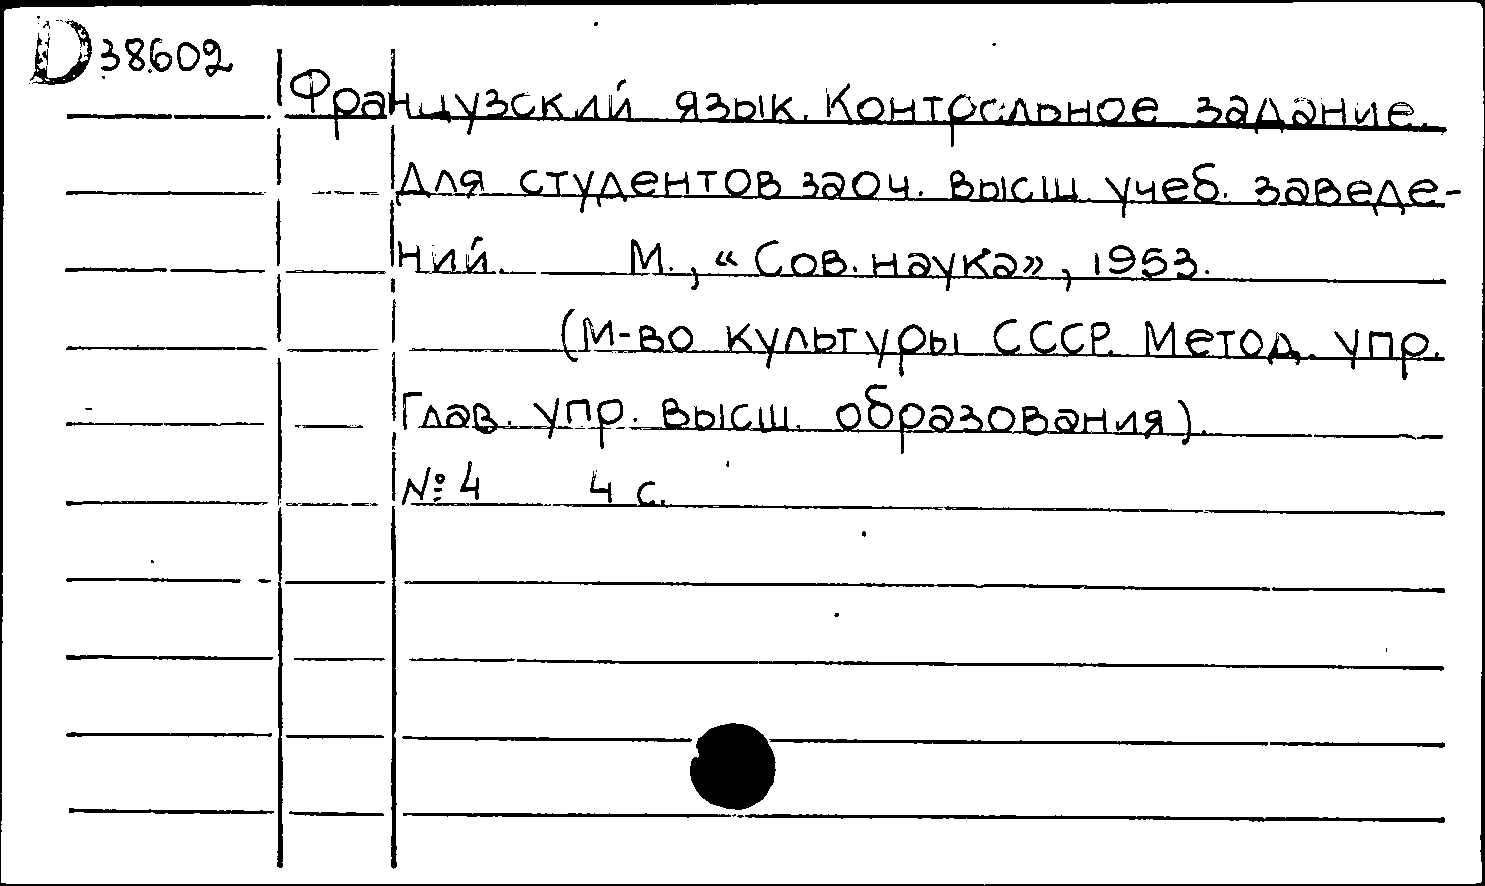 D 38602
Французский язык. Контрольное задание.
Для студентов заоч. высш. учеб. заведе-
ний. М., «Сов. наука», 1953.
(М-во культуры СССР. Метод. упр.
Глав. упр. высш. образования).
№ 4 4 с.